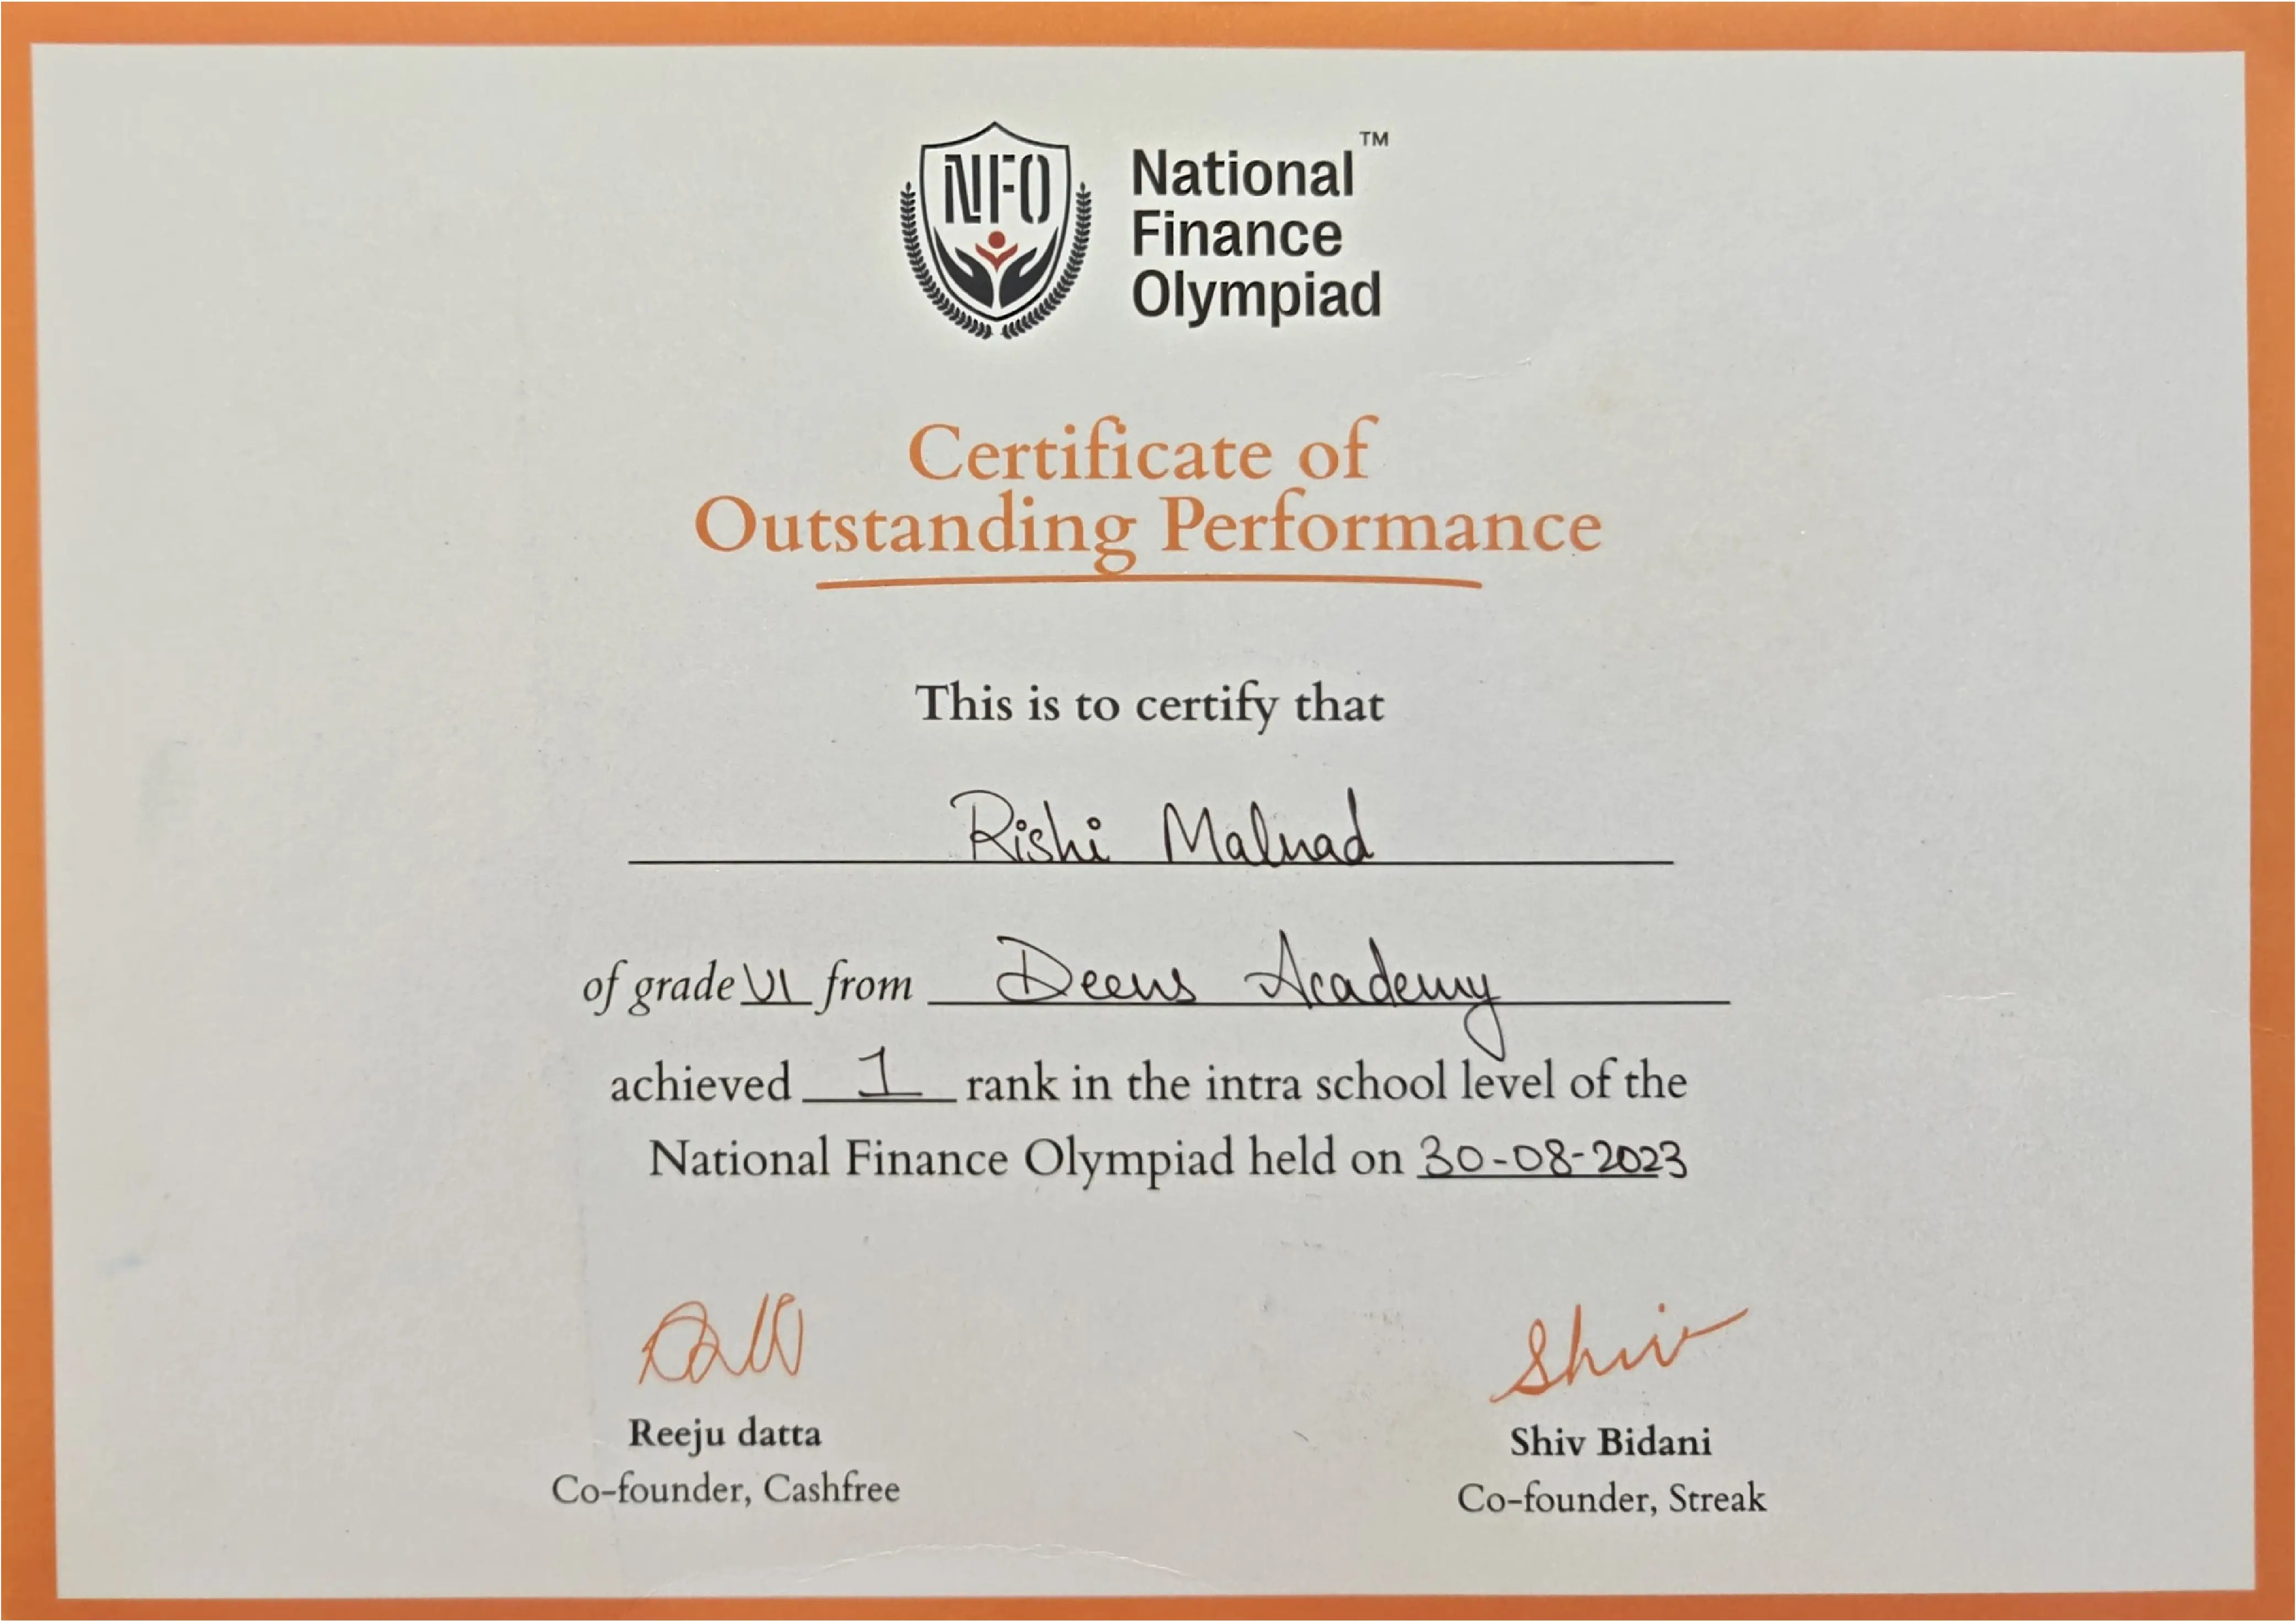 NFO
National™
Finance
Olympiad
Certificate of
Outstanding Performance
This is to certify that
Rishi Malnad
of grade VI from Deens Academy
achieved 1 rank in the intra school level of the
National Finance Olympiad held on 30-08-2023
Shiv
Reeju datta
Shiv Bidani
Co-founder, Cashfree
Co-founder, Streak